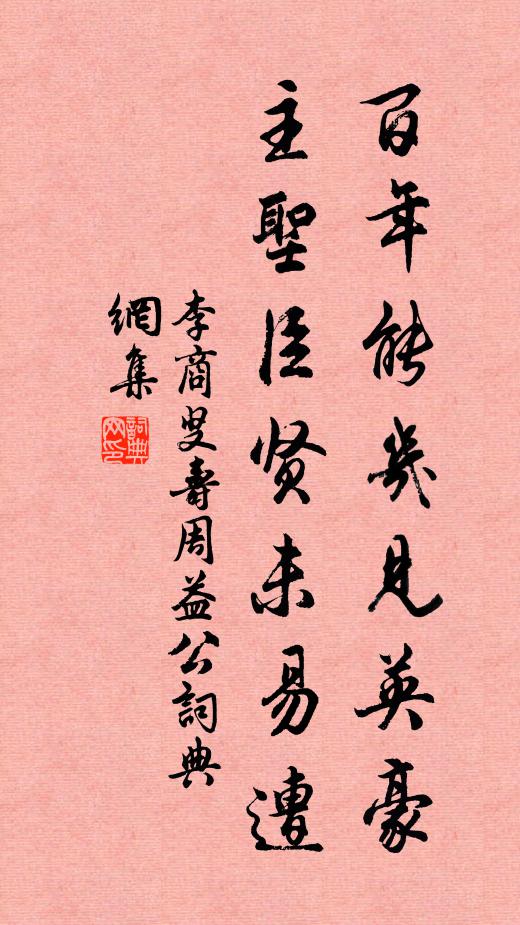 百年能幾見英豪
主聖臣贤未易遭
李商叟壽周益公詞典
網集
詞典
网印